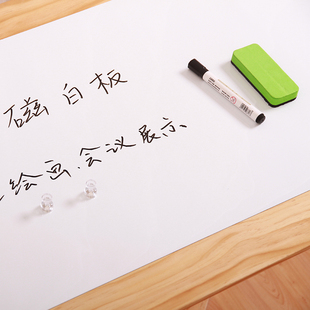 磁白板
绘画.会议展示